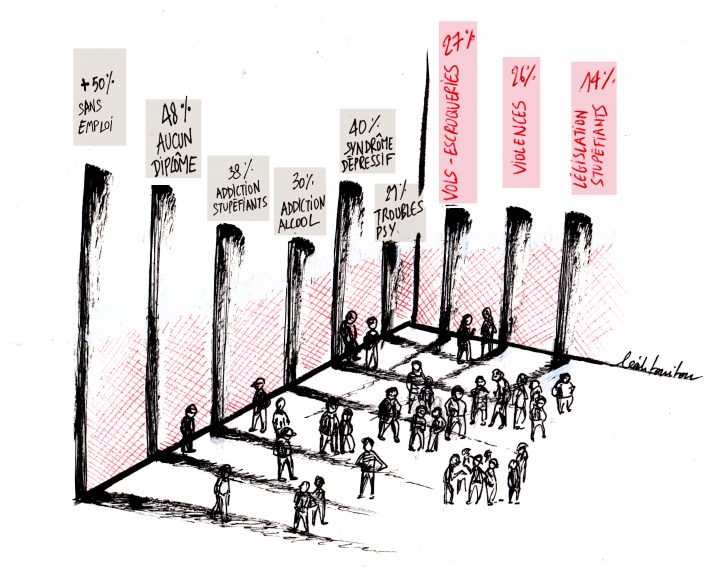 +50%
SANS
EMPLOI
48%
AUCUN
DIPLÔME
38%
ADDICTION
STUPÉFIANTS
30%
ADDICTION
ALCOOL
40%
SYNDRÔME
DÉPRESSIF
21%
TROUBLES
PSY
VOLS - ESCROQUERIES 27%
VIOLENCES 26%
LÉGISLATION 14%
STUPÉFIANTS